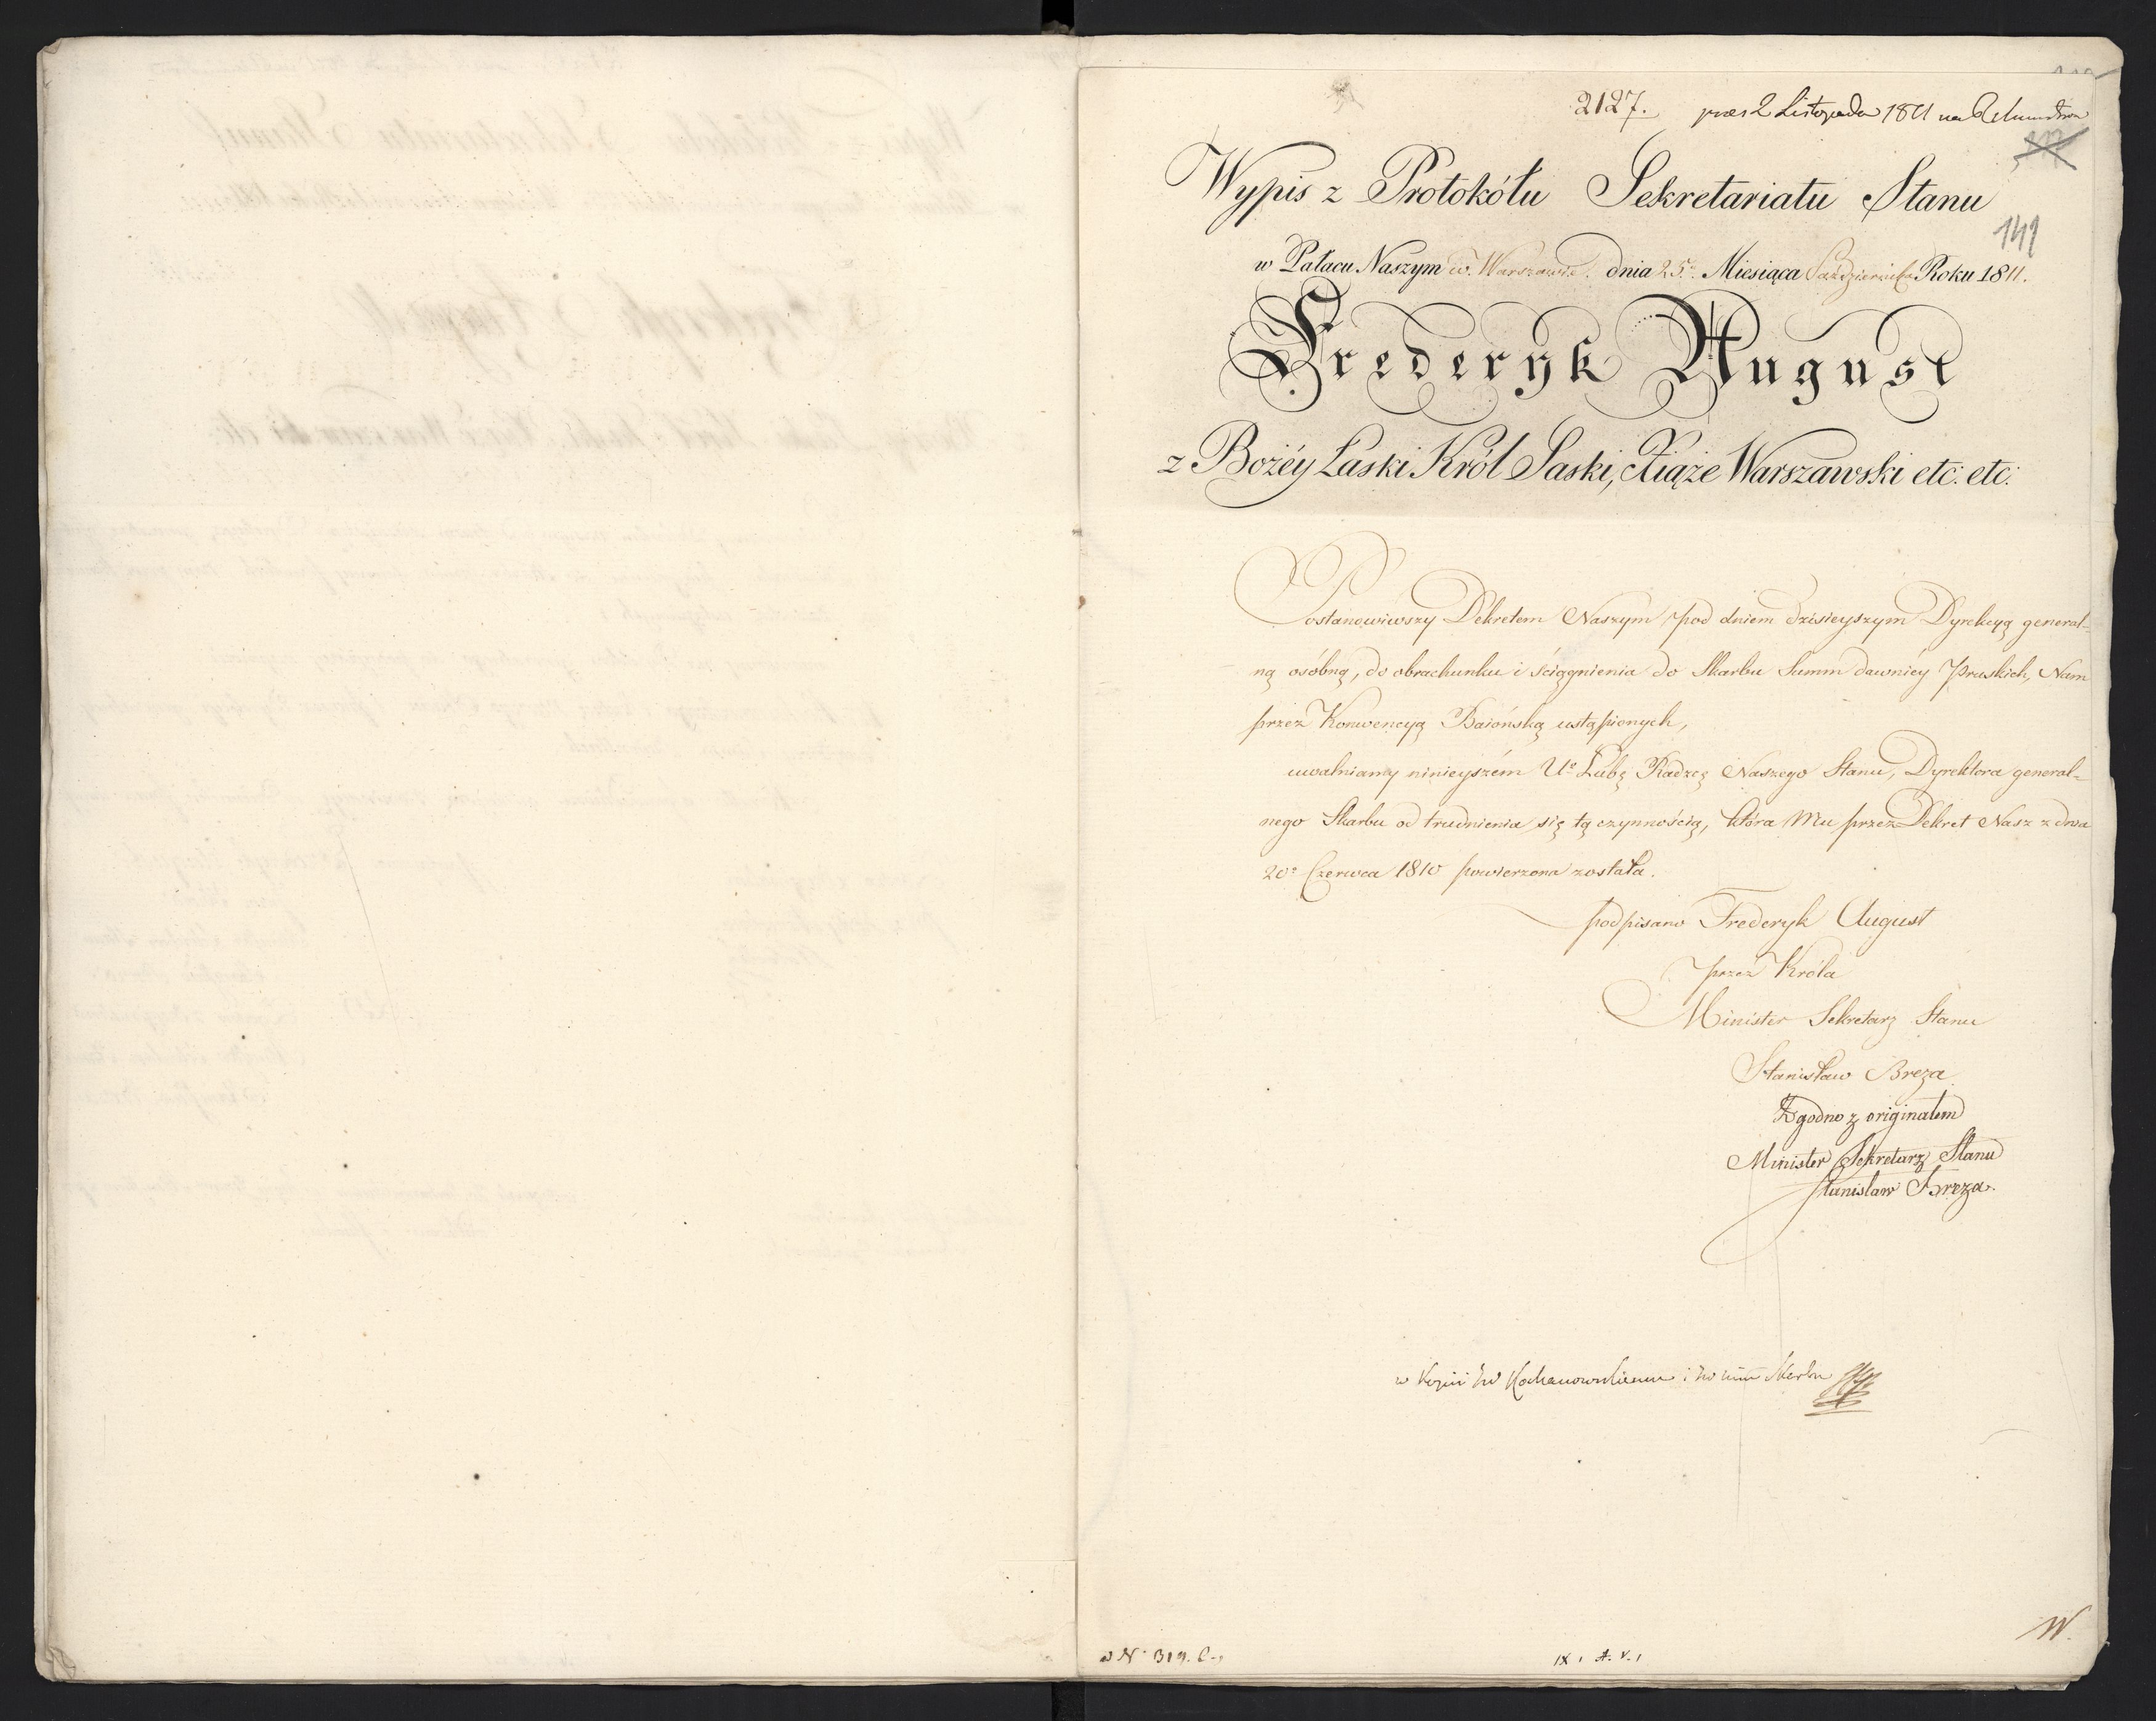 2127. 2 Listopada 1811 na
141
Wypis z Protokółu Sekretariatu Stanu
w Pałacu Naszym w Warszawie. dnia 25º Miesiąca Października Roku 1811.
Frederyk August
z Bożéy Łaski Król Saski, Xiąże Warszawski etc: etc:
Postanowiwszy Dekretem Naszym pod dniem dzisieyszym Dyrekcyą general=
ną osóbną, do obrachunku i ściągnienia do Skarbu Summ dawniéy Pruskich, Nam
przez Konwencyą Baiońską ustąpionych,
uwalniamy ninieyszém Uº Lubę Radzcę Naszego Stanu, Dyrektora general=
nego Skarbu od trudnienia się tą czynnością, która Mu przez Dekret Nasz z dnia
20º Czerwca 1810 powierzona została.
podpisano Frederyk August
przez Króla
Minister Sekretarz Stanu
Stanisław Breza
Zgodno z originałem
Minister Sekretarz Stanu
Stanisław Breza.
w Kopii Kochanowskiemu i Skarbu
W.
N: 319.
IX 1 A. V. 1